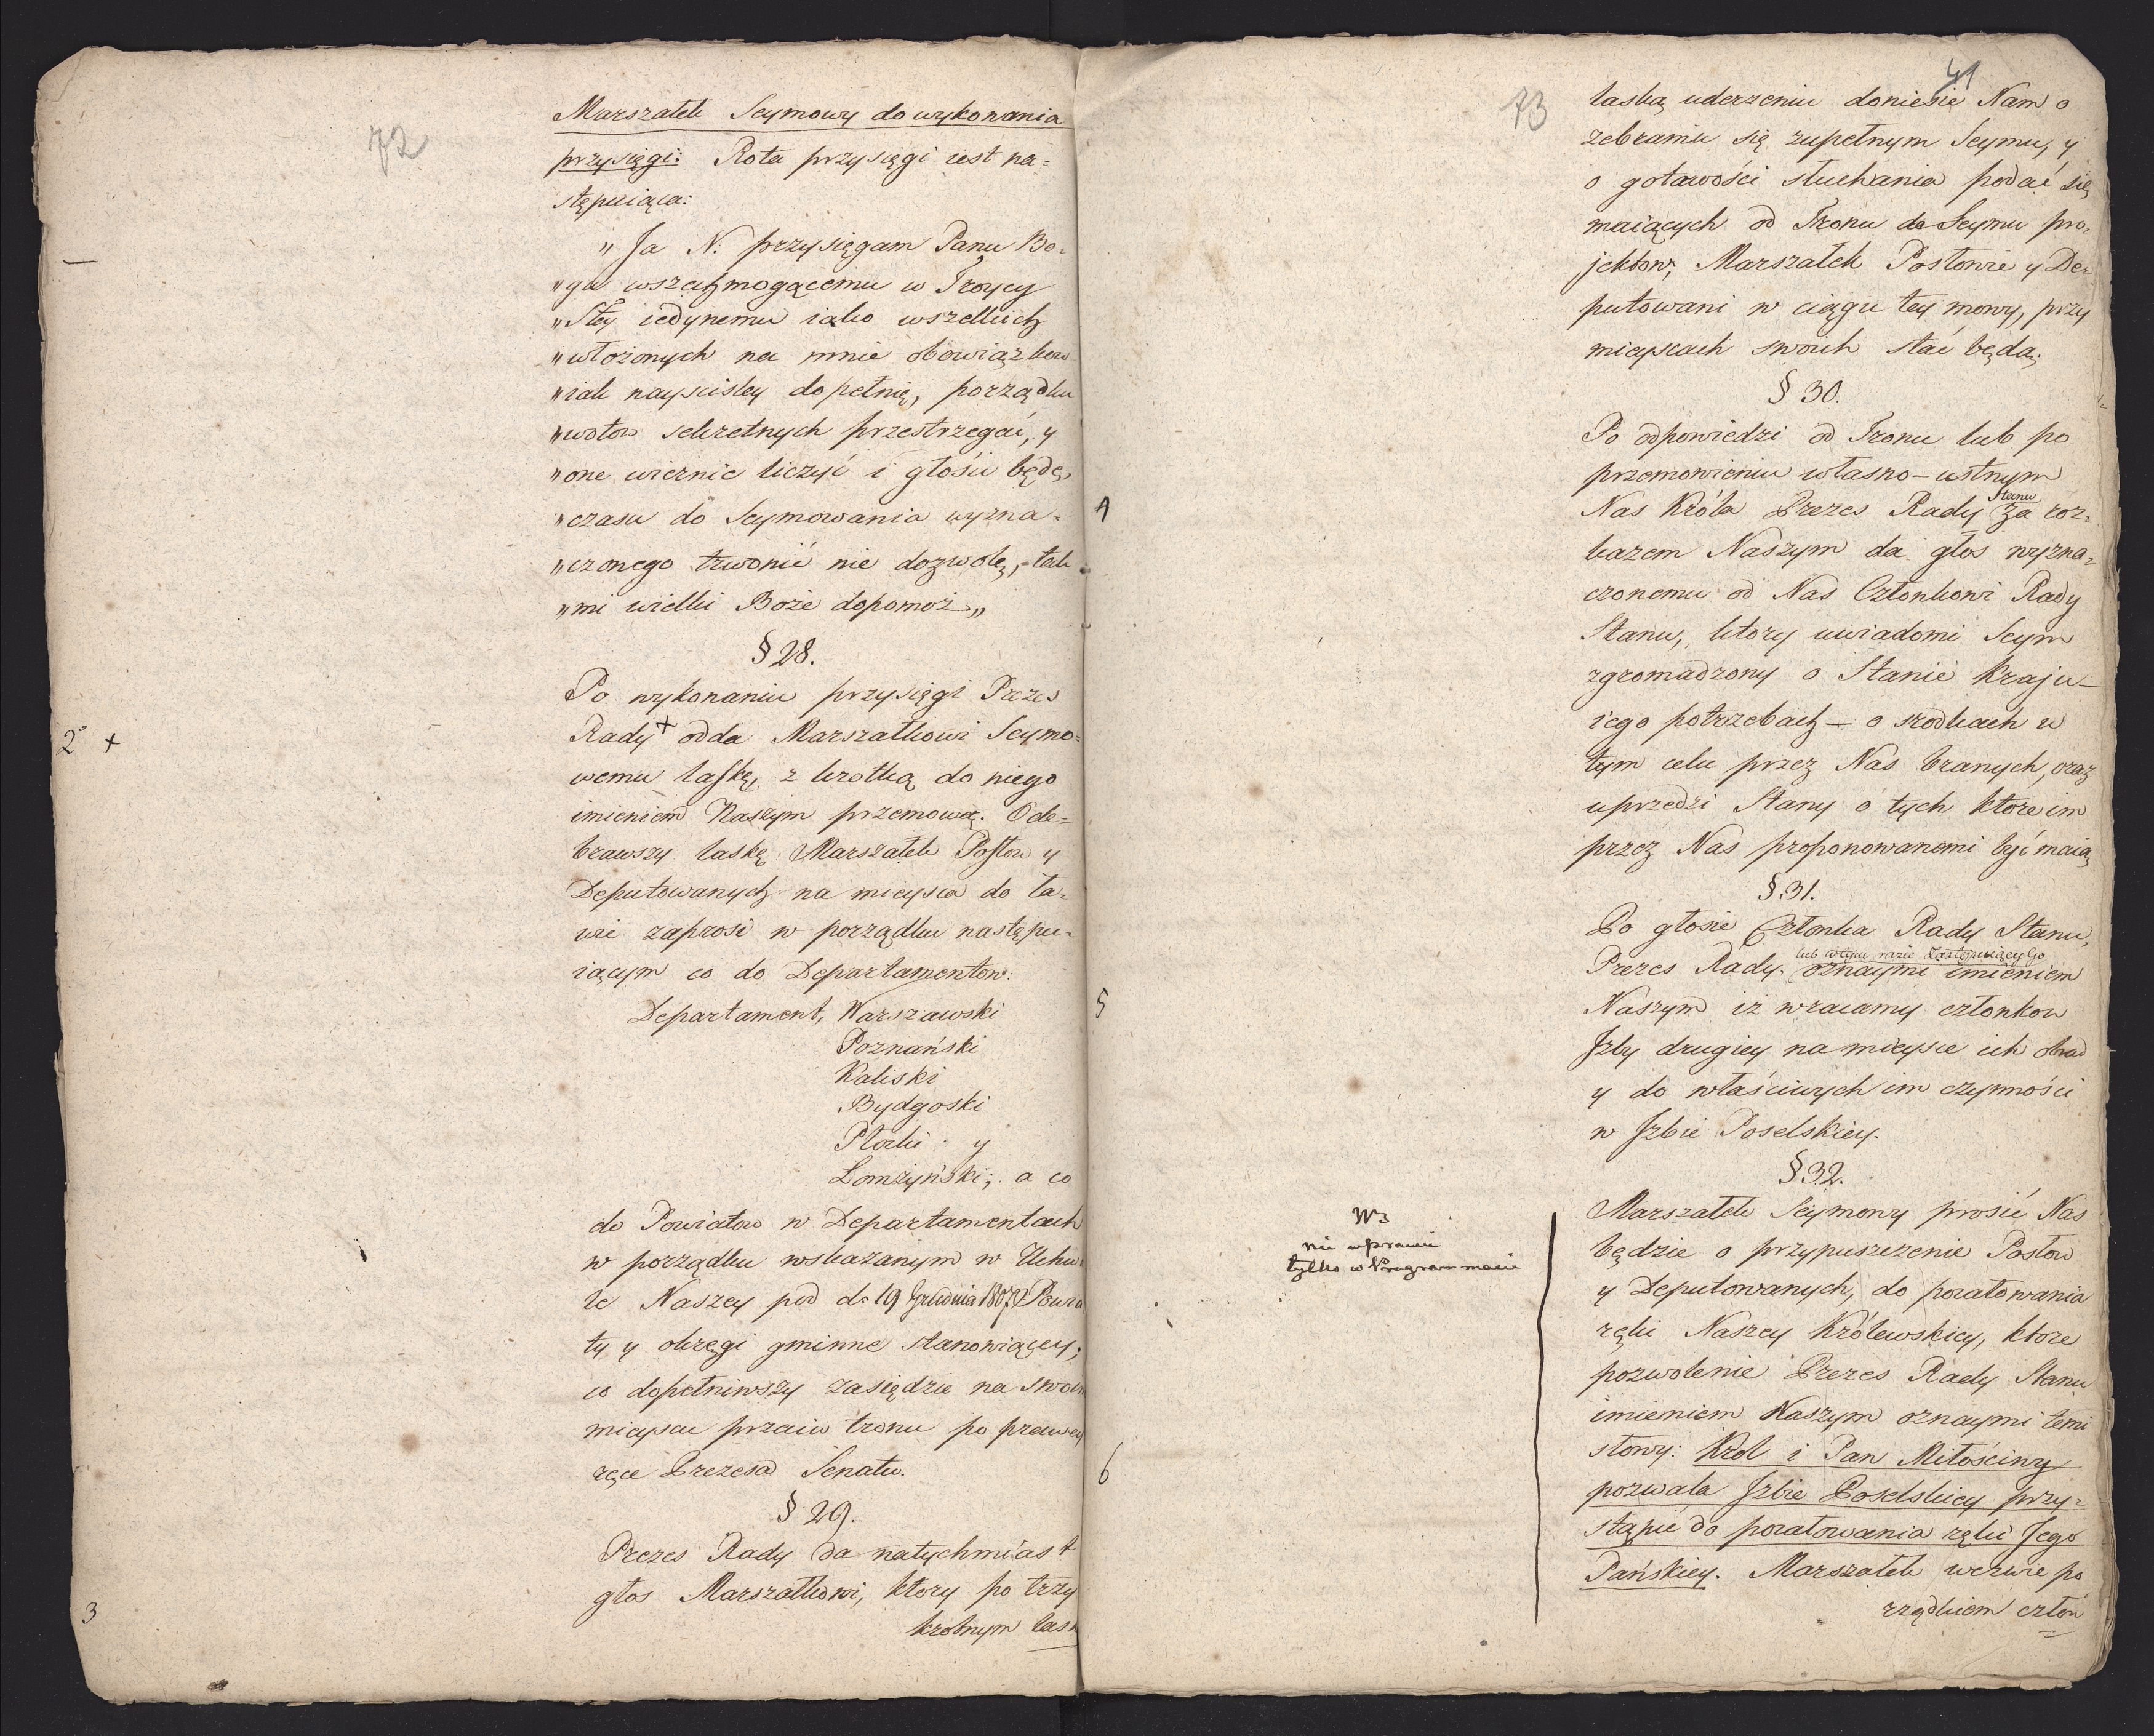 72
Marszałek Seymowy do wykonania
przysięgi: Rota przysięgi iest na=
stępuiąca:
„Ja N: przysięgam Panu Bo=
„gu wszechmogącemu w Troycy
„Stey iedynemu iako wszelkich
„włożonych na mnie obowiązkow
„iak nayscisley dopełnię, porządku
„wotow sekretnych przestrzegać, y
„one wiernie liczyć i głosić będę,
„czasu do Seymowania wyzna=
„czonego trwonić nie dozwolę, tak
„mi wielki Boże dopomoż„
§ 28.
Po wykonaniu przysięgi Prezes
2° +
Rady + odda Marszałkowi Seymo=
wemu laskę, z krotką do niego
imieniem Naszym przemową. Ode=
brawszy laskę Marszałek Posłow y
Deputowanych na mieysca do ła=
wic zaprosi w porządku następu=
iącym co do Departamentow:
Departament, Warszawski
Poznański
Kaliski
Bydgoski
Płocki y
Łomżyński; a co
do Powiatow w Departamentach
w porządku wskazanym w Uchwa
le Naszey pod d. 19 Grudnia 1807 Powia
ty y okręgi gminne stanowiącey;
co dopełniwszy zasiędzie na swoim
mieyscu przeciw tronu po prawey
ręce Prezesa Senatu.
§ 29.
Prezes Rady da natychmiast
3
głos Marszałkowi, ktory po trzy
krotnym lask
41
73
laską uderzeniu doniesie Nam o
zebraniu się zupełnym Seymu, y
o gotowości słuchania podać się
maiących od Tronu do Seymu pro=
jektow; Marszałek Posłowie y De=
putowani w ciągu tey mowy, przy
mieyscach swoich stać będą.
§ 30.
Po odpowiedzi od Tronu lub po
przemowieniu własno-ustnym
Stanu
4
Nas Króla Prezes Rady za roz=
kazem Naszym da głos wyzna=
czonemu od Nas Członkowi Rady
Stanu, ktory uwiadomi Seym
zgromadzony o Stanie Kraju –
iego potrzebach – o srodkach w
tym celu przez Nas branych, oraz
uprzedzi Stany o tych ktore im
przez Nas proponowanemi być maią
§.31.
Po głosie Członka Rady Stanu,
lub w tym razie Zastępuiący Go
Prezes Rady. oznaymi imieniem
5
Naszym iż wracamy członkow
Jzby drugiey na mieysce ich obrad
y do właściwych im czynności
w Jzbie Poselskiey.
§.32.
nie w prawie
tylko w Programmacie
Marszałek Seymowy prosić Nas
będzie o przypuszczenie Posłow
y Deputowanych, do pocałowania
ręki Naszey Królewskiey, ktore
pozwolenie Prezes Rady Stanu
imieniem Naszym oznaymi temi
6
słowy: Krol i Pan Miłościwy
pozwala Jzbie Poselskiey przy=
stąpić do pocałowania ręki Jego
Pańskiey. Marszałek wezwie po
rządkiem człon